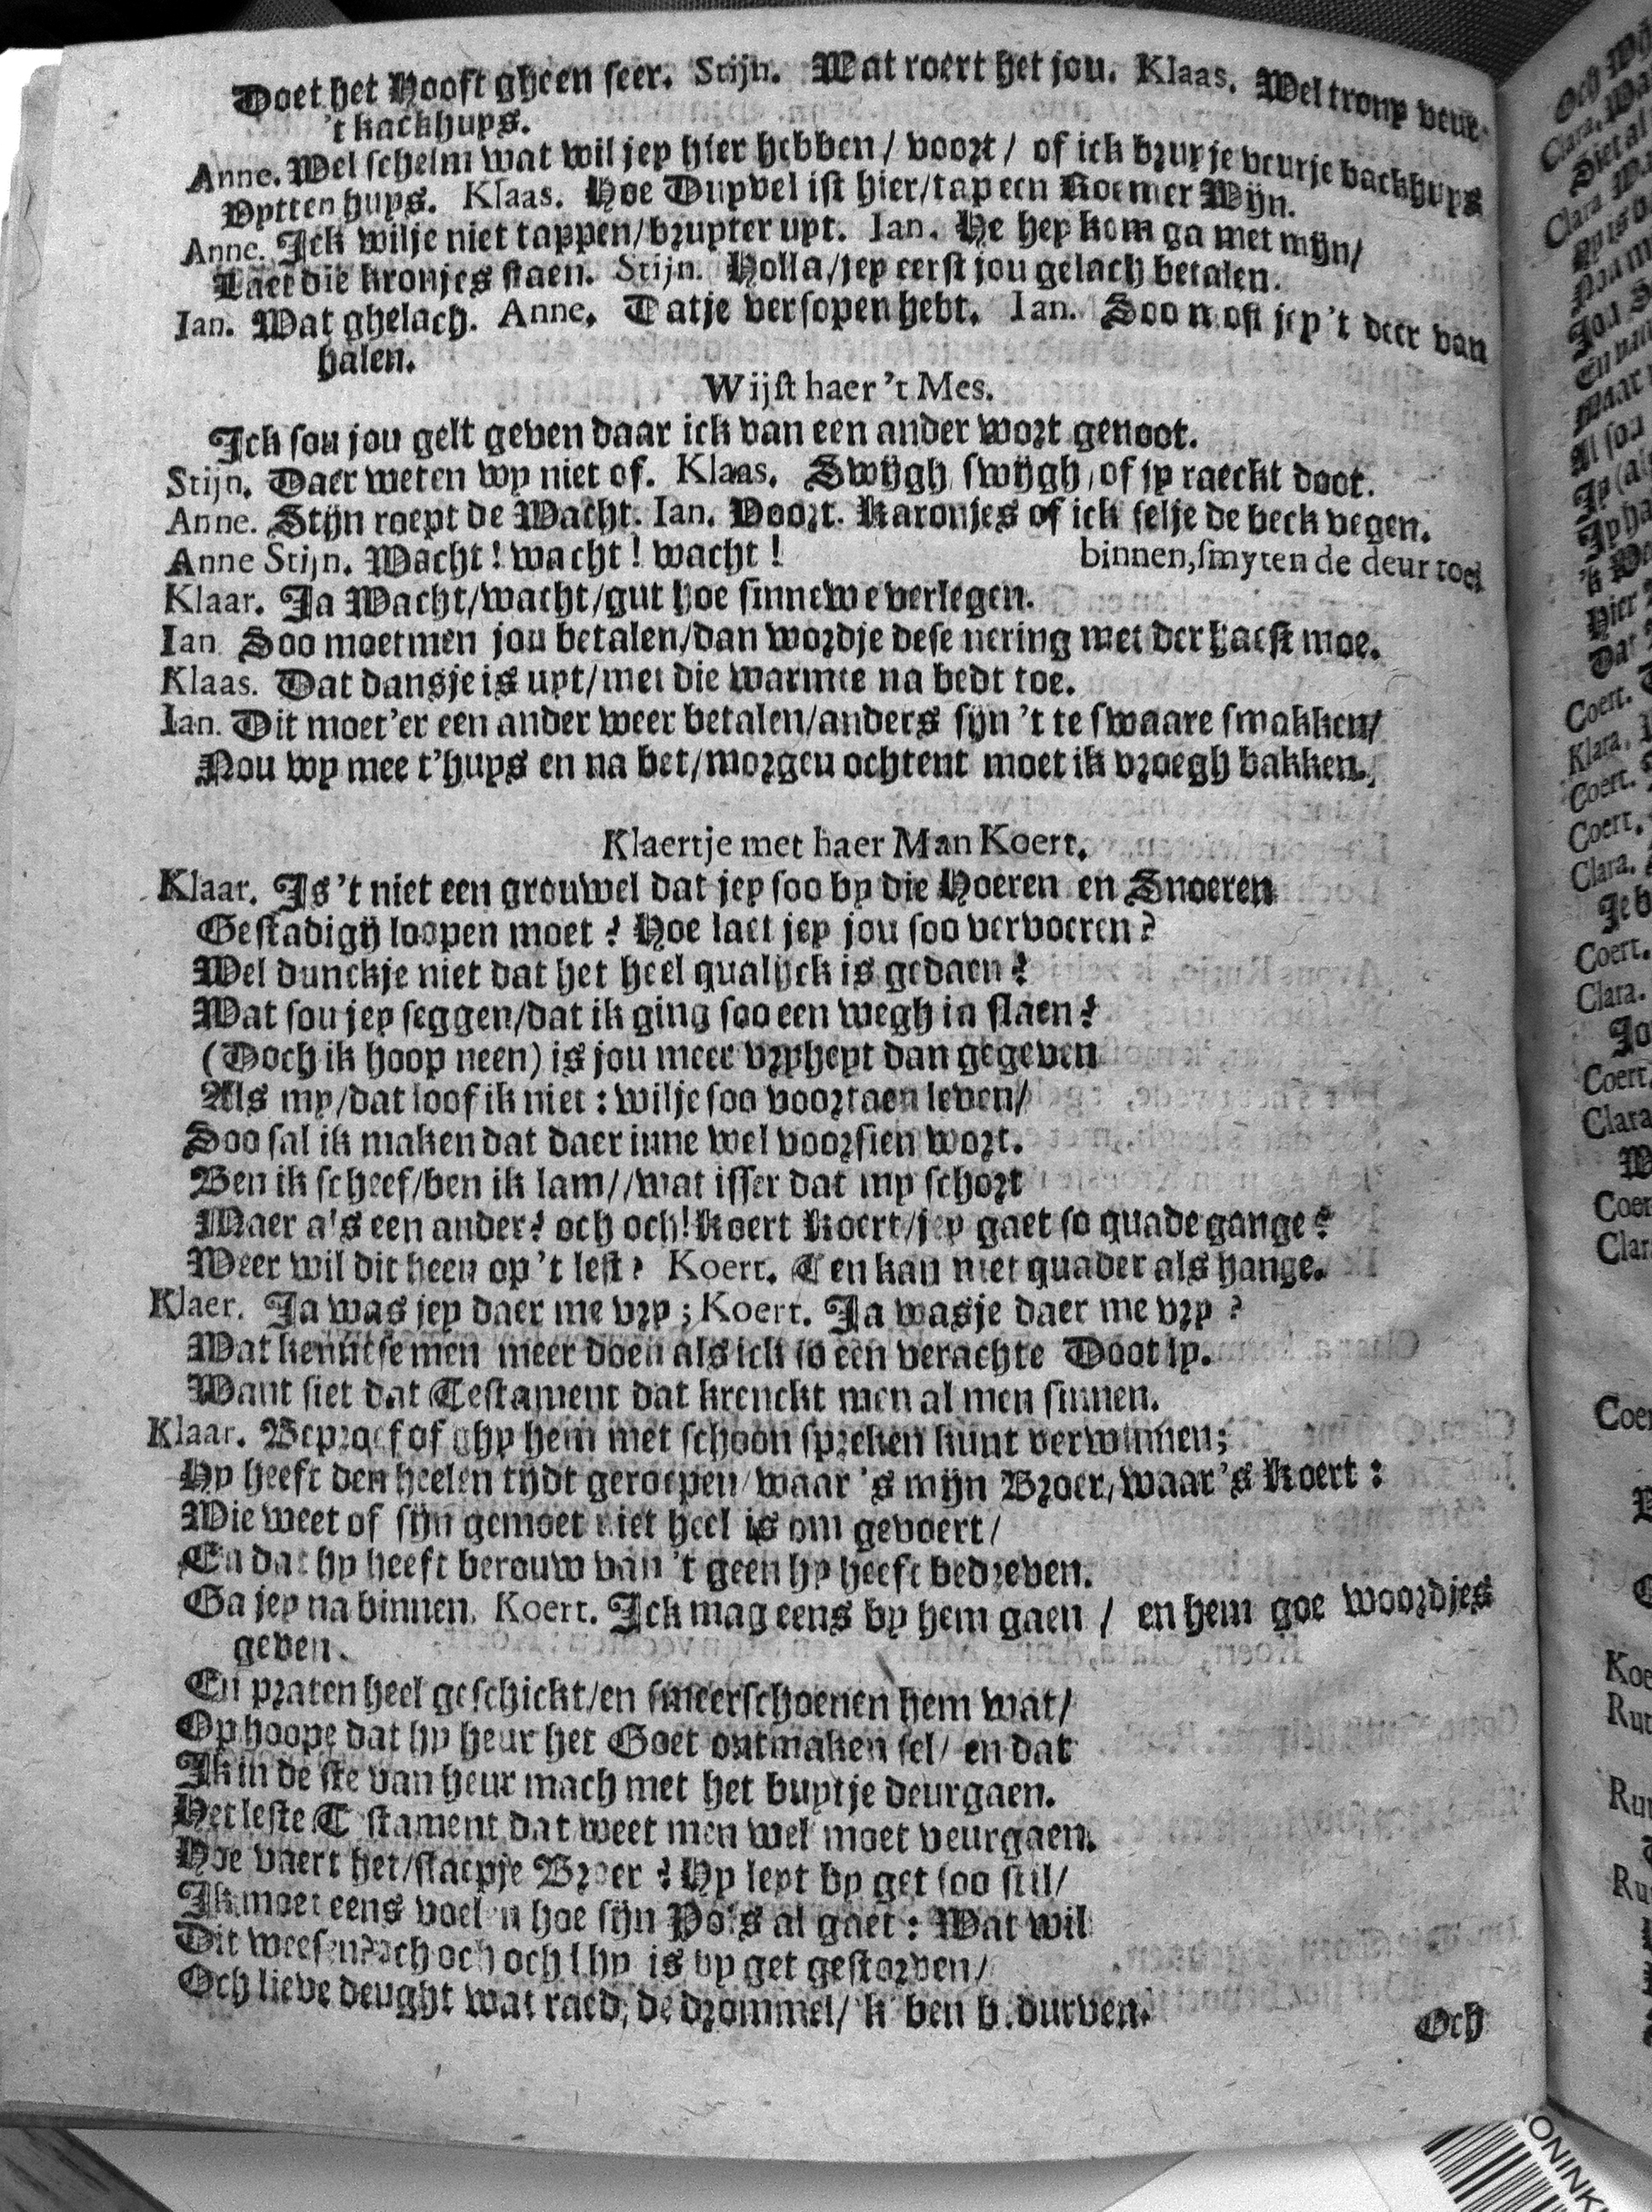 Doet het Hooft gheen seer. Stijn. Wat roert het jou. Klaas. Wel trony veur
't kackhuys.
Anne. Wel schelm wat wil jey hier hebben / voort / of ick bruy je veurje backhuys
Uytten huys. Klaas. Hoe Duyvel ist hier/tap een Roemer Wijn.
Anne. Ick wilje niet tappen/bruyter uyt. Ian. He hey kom ga met mijn/
Laet die kronjes staen. Stijn. Holla/jey eerst jou gelach betalen.
Ian. Wat ghelach. Anne. Tatje versopen hebt. Ian. Soo most jey 't deer van
halen.
Wijst haer 't Mes.
Ick sou jou gelt geven daar ick van een ander wort genoot.
Stijn. Daer weten wy niet of. Klaas. Swijgh swijgh, of jy raeckt doot.
Anne. Stijn roept de Wacht. Ian. Voort. Karonjes of ick selje de beck vegen.
Anne Stijn. Wacht! wacht! wacht! binnen, smyten de deur toe
Klaar. Ja Wacht/wacht/gut hoe sinnewe verlegen.
Ian Soo moetmen jou betalen/dan wordje dese nering met der haest moe.
Klaas. Dat dansje is uyt/met die warmte na bedt toe.
Ian. Dit moet'er een ander weer betalen/anders sijn 't te swaare smakken/
Nou wy mee t'huys en na bet/morgen ochtent moet ik vroegh bakken.
Klaertje met haer Man Koert.
Klaar. Is 't niet een grouwel dat jey soo by die Hoeren en Snoeren
Gestadigh loopen moet? Hoe laet jey jou soo vervoeren?
Wel dunckje niet dat het heel qualijck is gedaen?
Wat sou jey seggen/dat ik ging soo een wegh in slaen?
(Doch ik hoop neen) is jou meer vryheyt dan gegeven
Als my/dat loof ik niet: wilje soo voortaen leven/
Soo sal ik maken dat daer inne wel voorsien wort.
Ben ik scheef/ben ik lam//wat isser dat my schort
Maer als een ander? och och! Koert Koert/jey gaet so quade gange?
Weer wil dit heen op 't lest? Koert. Ten kan niet quader als hange.
Klaer. Ja was jey daer me vry; Koert. Ja wasje daer me vry?
Wat kenntse men meer doen als ick so een verachte Doot ly.
Want siet dat Testament dat krenckt men al men sinnen.
Klaar. Beproef of ghy hem met schoon spreken kunt verwinnen;
Hy heeft den heelen tijdt geroepen/waar 's mijn Broer, waar's Koert:
Wie weet of sijn gemoet niet heel is om gevoert/
En dat hy heeft berouw van 't geen hy heeft bedreven.
Ga jey na binnen. Koert. Ick mag eens by hem gaen / en hem goe woordjes
geven.
En praten heel geschickt/en smeerschoenen hem wat/
Op hoope dat hy heur het Goet ontmaken sel/ en dat
Ik in de ste van heur mach met het buytje deurgaen.
Het leste T stament dat weet men wel moet veurgaen.
Hoe vaert het/slaepje Broer? Hy leyt by get soo stil/
Ik moet eens voelen hoe sijn Pols al gaet: Wat wil
Dit weesen? och och och! hy is by get gestorven/
Och lieve deught wat raed; de drommel/ 'k ben b.durven.
Och